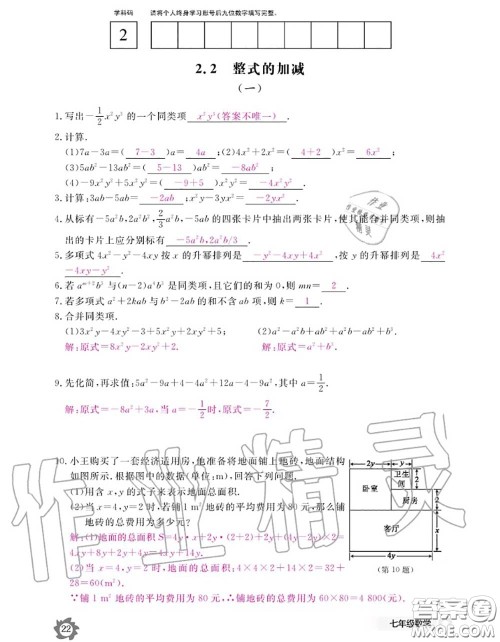 学科码 请将个人终身学习形号后九位数字填写完整。
2
2.2 整式的加减
(一)
1.写出-1/2x²y³的一个同类项 x²y³(答案不唯一).
2.计算.
(1)7a-3a=(7-3)a=4a;(2)4x²+2x²=(4+2)x²=6x²;
(3)5ab²-13ab²=(5-13)ab²=-8ab²;
(4)-9x²y²+5x²y²=(-9+5)x²y²=-4x²y².
3.计算:3ab-5ab=-2ab;x²y-3yx²=-2yx².
抽出两张卡片,使其能合并同类项,则抽
出的卡片上应分别标有 -5a²b,2a²b/3.
5.多项式4x²-y²-4xy按x的升幂排列是 -y²-4xy+4x²,按y的升幂排列是 4x²
-4xy-y².
是同类项,且它们的和为0,则mn=2.
7.若多项式a²+2kab与b²-2ab的和不含ab项,则k=1.
8.合并同类项.
(1)3x²y-4xy²-3+5x²y+2xy²+5;
解:原式=8x²y-2xy²+2.
解:原式=0.
9.先化简,再求值:5a²-9a+4-4a²+12a-4-9a²,其中a=-1/2.
解:原式=-8a²+3a,当a=-1/2时,原式=-7/2.
10.小王购买了一套经济适用房,他准备将地面铺上地砖,地面结构
如图所示,根据图中的数据(单位:m),回答下列问题.
(1)用含x,y的式子来表示地面总面积.
(2)当x=4,y=2时,若铺1m²地砖的平均费用为80元,那么铺
地砖的总费用为多少元?
解:(1)地面的总面积S=4y·x+2y·(2+2)+2y+(x-2)×2=
4xy+8y+2y+4y=4xy+14y.
(2)当x=4,y=2时,地面的总面积=4×4×2+14×2=32+
28=60(m²).
∵铺1m²地砖的平均费用为80元,
2y
2y
卫生间
卧室
2
厨房
2
x
客厅
4y
(第10题)
22
七年级数学
作业精灵